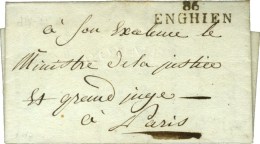 86
ENGHIEN
à Son Excellence le
Ministre de la justice
Et grand juge
à Paris